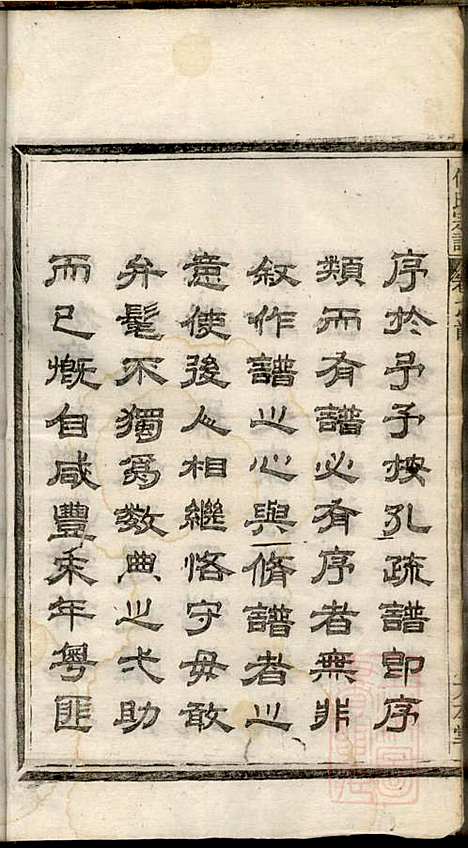 序於予予按孔疏譜即序
類而有譜必有序者無非
敘作譜之心與脩譜者之
意使後人相繼恪守毋敢
弁髦不獨為數典之弋助
而已慨自咸豐末年粵匪